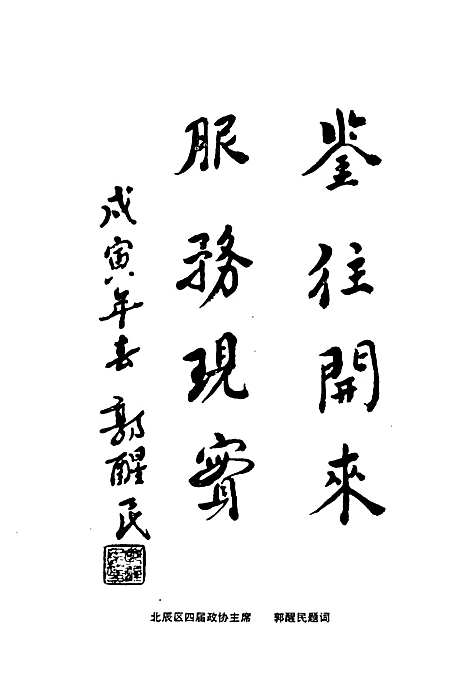 鉴往開來
服務現實
戊寅年春 郭醒民
北辰区四届政协主席 郭醒民题词